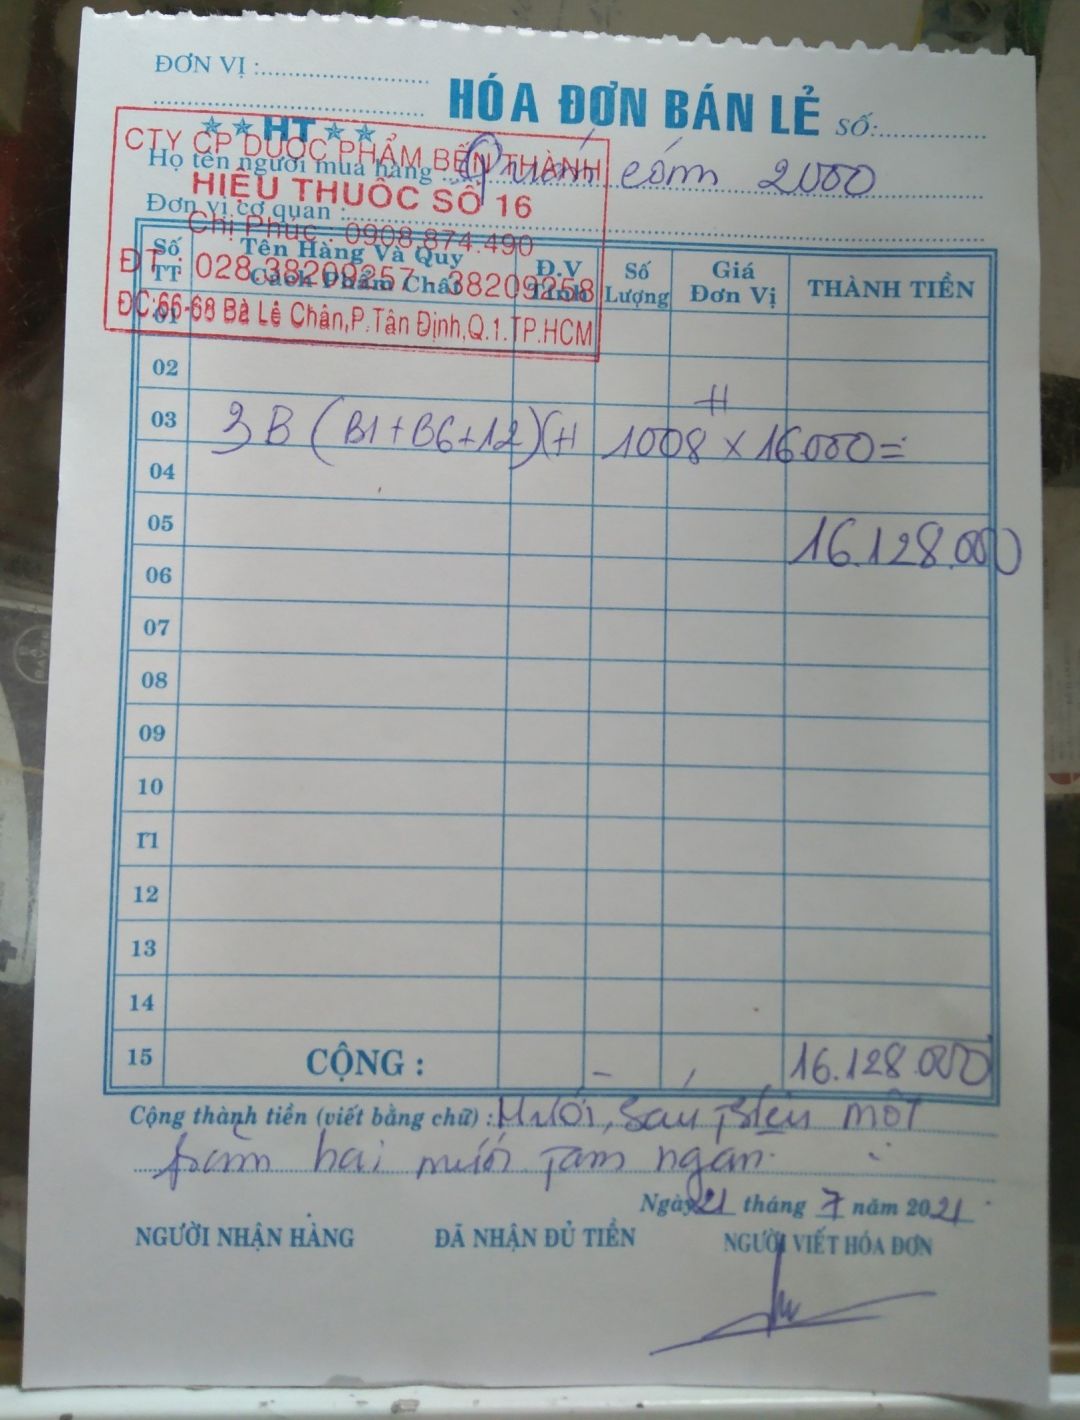 ĐƠN VỊ :
HÓA ĐƠN BÁN LẺ SỐ:
★ ★ HT ★ ★
CTY CP DƯỢC PHẨM BẾN THÀNH
Họ tên người mua hàng Quán cơm 2000
HIỆU THUỐC SỐ 16
Đơn vị cơ quan :
Chị Phúc : 0908.874.490
Số TT Tên Hàng Và Quy Cách Phẩm Chất Đ.V Tính Số Lượng Giá Đơn Vị THÀNH TIỀN
ĐT : 028.38209257 - 38209258
ĐC:66-68 Bà Lê Chân,P.Tân Định,Q.1.TP.HCM
01
02
03 3B (B1+B6+12)(H 1008 H x 16.000=
04
05 16.128.000
06
07
08
09
10
11
12
13
14
15 CỘNG : 16.128.000
Cộng thành tiền (viết bằng chữ) : Mười, Sáu triệu một
trăm hai mươi tám ngàn.
Ngày 21 tháng 7 năm 2021
NGƯỜI NHẬN HÀNG ĐÃ NHẬN ĐỦ TIỀN NGƯỜI VIẾT HÓA ĐƠN